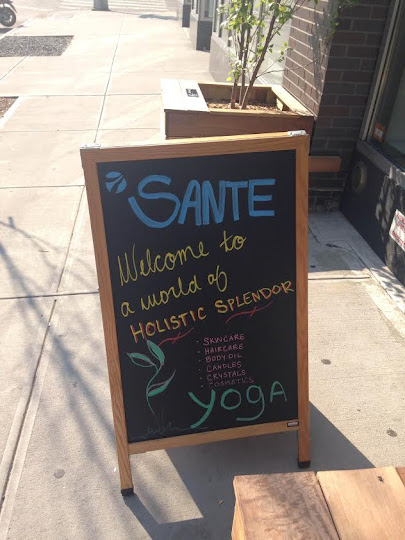 SANTE
Welcome to
a world of
HOLISTIC SPLENDOR
• SKINCARE
• HAIRCARE
• BODY OIL
• CANDLES
• CRYSTALS
• COSMETICS
YOGA